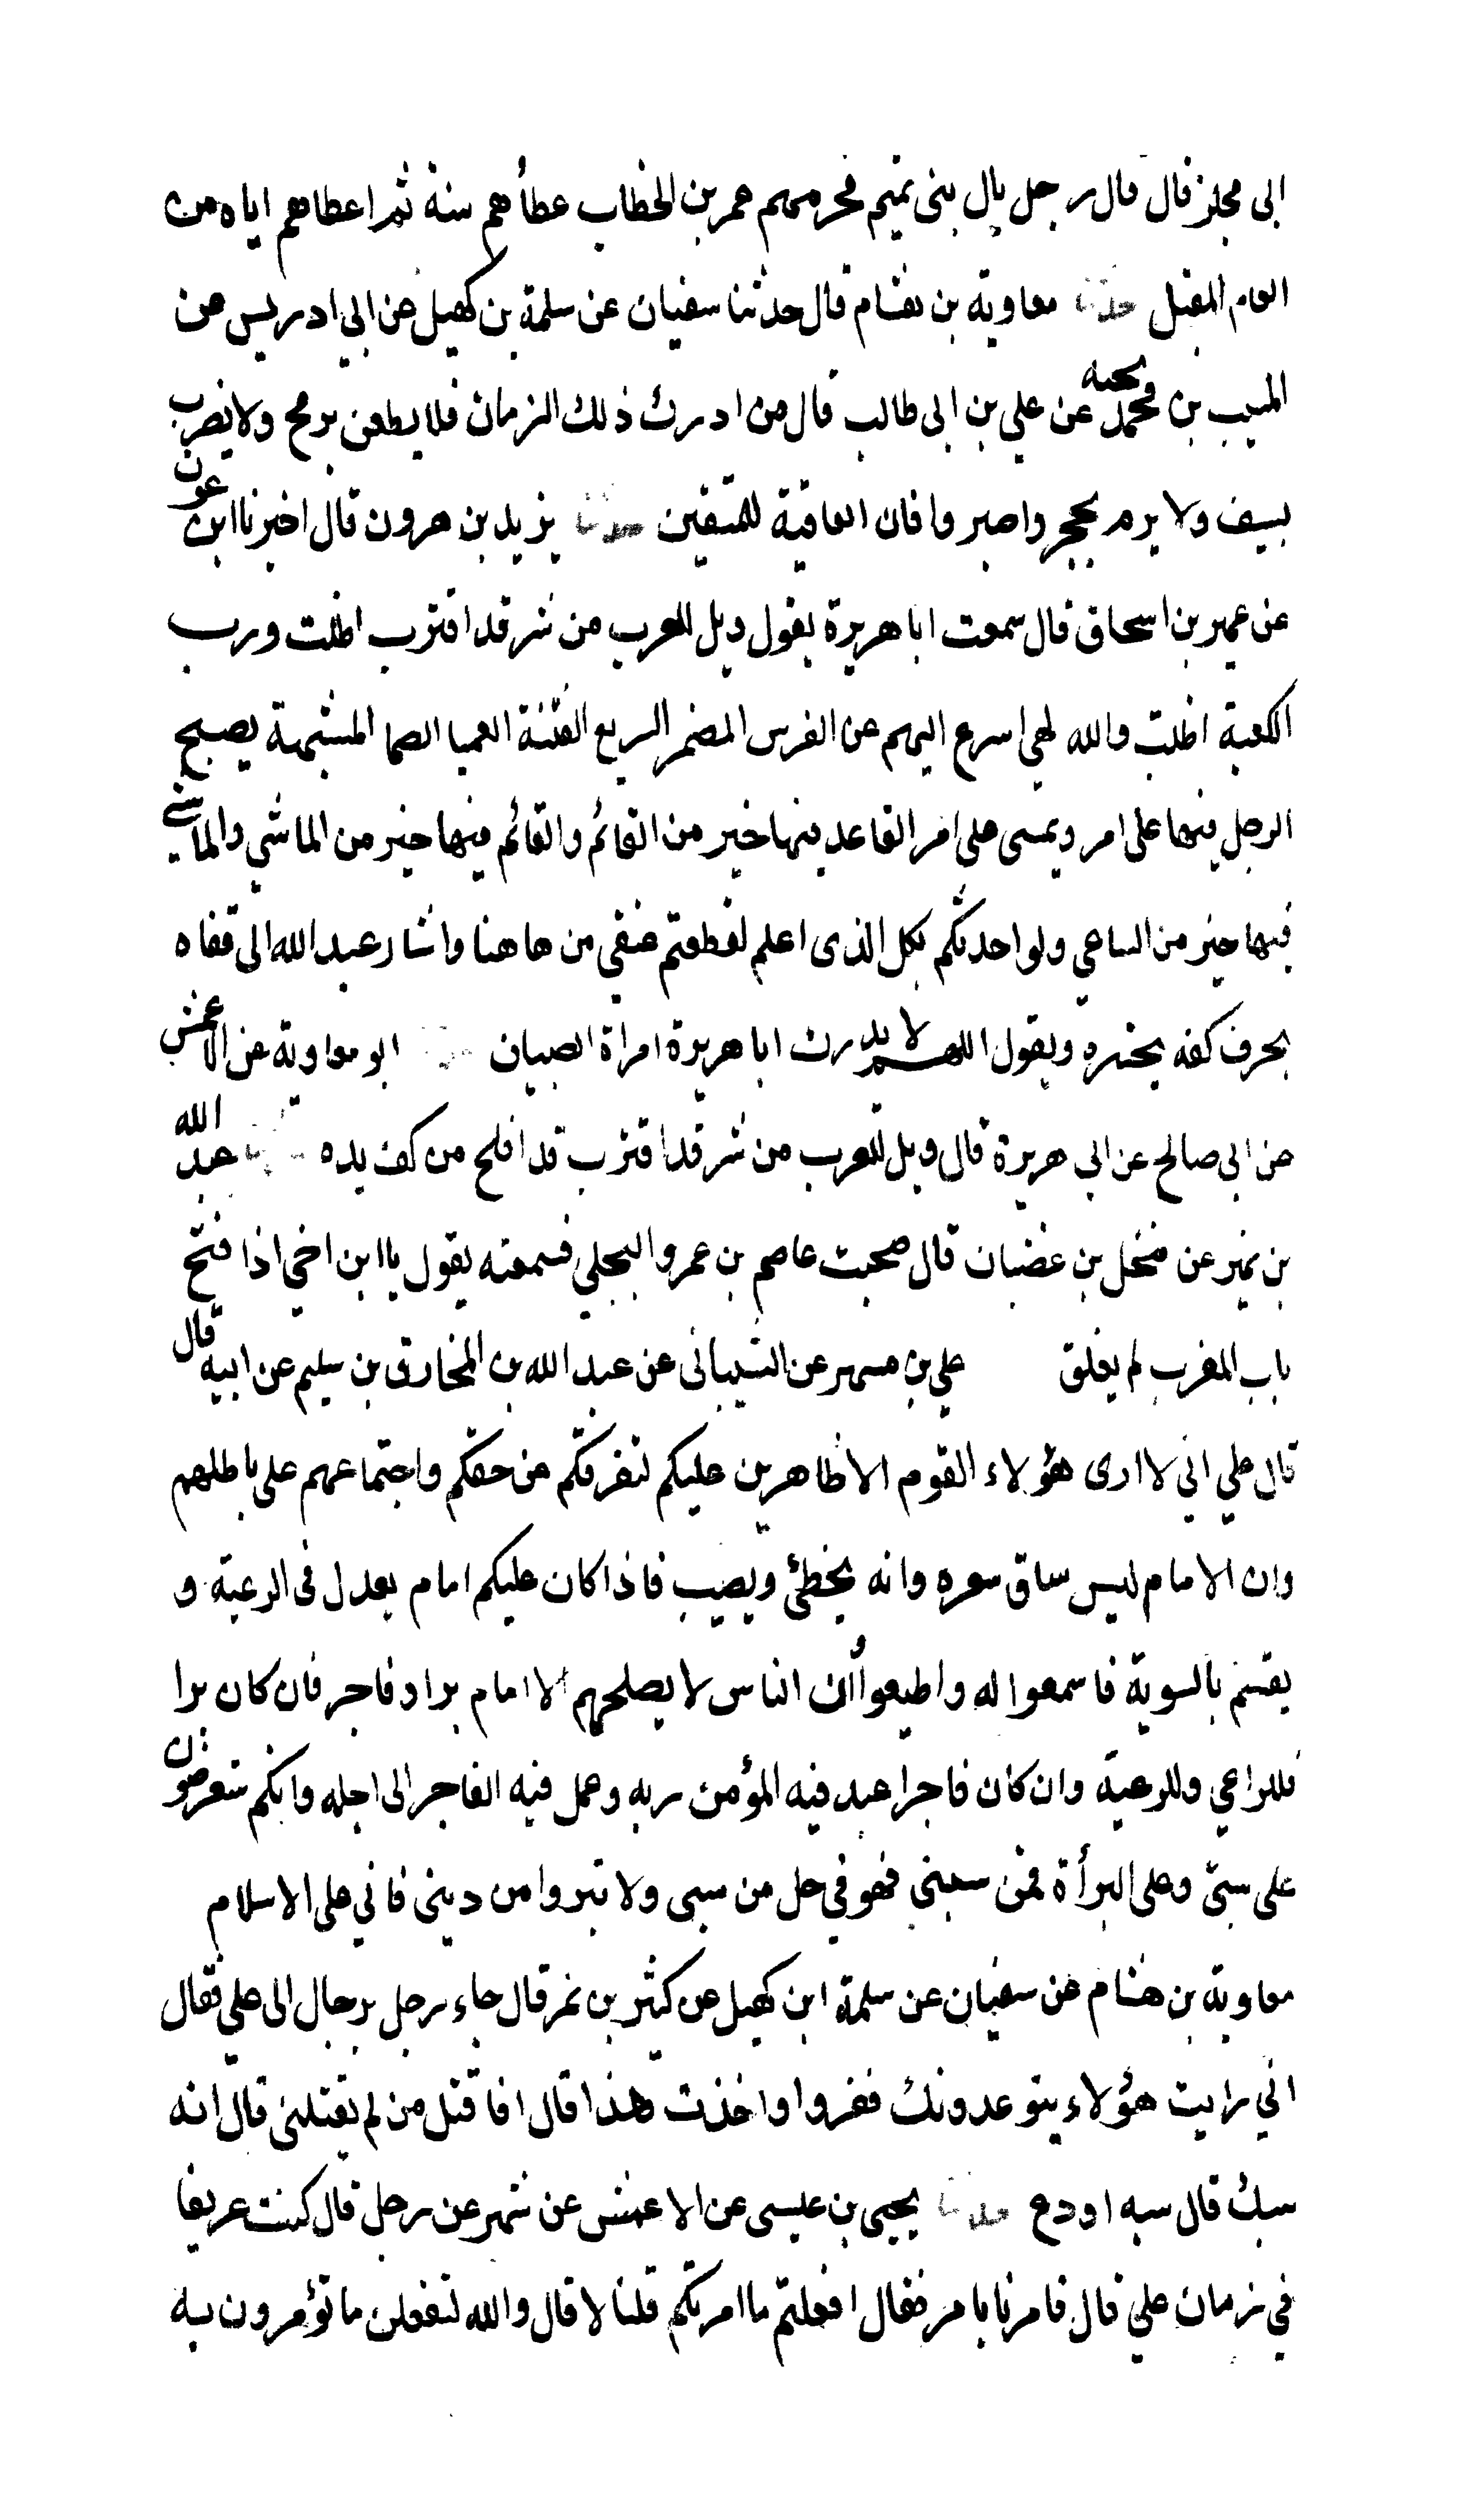 ابى مجلز قال قال رجل يال بنى تميم فحرمهم عمر بن الخطاب عطأهم سنة ثم اعطاهم اياه من
العام المقبل حدثنا معاوية بن هشام قال حدثنا سفيان عن سلمة بن كهيل عن ابي ادريس عن
المسيب بن نجبه عن علي بن ابى طالب قال من ادرك ذلك الزمان فلا يطعن برمح ولا يضرب
بسيف ولا يرم بحجر واصبروا فان العاقبة للمتقين حدثنا يزيد بن هرون قال اخبرنا ابن عون
عن عمير بن اسحاق قال سمعت ابا هريرة يقول ويل للعرب من شر قد اقترب اظلت ورب
الكعبة اظلت والله لهي اسرع اليهم من الفرس المضمر السريع الفتنة العميا الصما المشبهة يصبح
الرجل فيها على امر ويمسى على امر القاعد فيها خير من القائم والقائم فيها خير من الماشي والماشي
فيها خير من الساعي ولو احدثكم بكل الذى اعلم لقطعتم عنقي من هاهنا واشار عبد الله الى قفاه
بحرف كفه يحزه ويقول اللهم لا يدرك ابا هريرة امراة الصبيان ابو معاوية عن الاعمش
عن ابى صالح عن ابي هريرة قال ويل للعرب من شر قد اقترب قد افلح من كف يده حدثنا عبد الله
بن نمير عن منخل بن غضبان قال صحبت عاصم بن عمرو البجلي فسمعته يقول يا ابن اخي اذا فتح
باب المغرب لم يغلق علي بن مسهر عن الشيبانى عن عبد الله بن المخارق بن سليم عن ابيه قال
قال علي اني لا ارى هؤلاء القوم الا ظاهرين عليكم لتفرقكم عن حقكم واجتماعهم على باطلهم
وان الامام ليس ساق سعره وانه يخطئ ويصيب فاذا كان عليكم امام يعدل فى الرعية و
يقسم بالسوية فاسمعوا له واطيعوا وان الناس لا يصلحهم الا امام بر او فاجر فان كان برا
فللراعي وللرعية وان كان فاجرا عبد فيه المؤمن ربه وعمل فيه الفاجر الى اجله وانكم ستعرضون
على سبى وعلى البرأة فمن سبني فهو في حل من سبى ولا تبروا من دينى فاني على الاسلام
معاوية بن هشام عن سفيان عن سلمة ابن كهيل عن كثير بن نمر قال جاء رجل برجال الى علي فقال
اني رايت هؤلاء يتوعدونك ففروا واخذت هذا قال افاقتل من لم يقتلنى قال انه
سبك قال سبه او دع حدثنا يحيى بن عيسى عن الاعمش عن شمر عن رجل قال كنت عريفا
في زمان علي قال فامرنا بامر فقال افعلتم ما امرتكم قلنا لا قال والله لتفعلن ما تؤمرون به